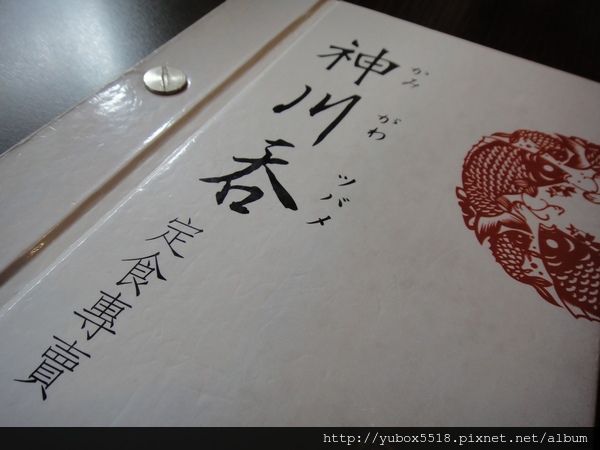 神川吞
かみ
がわ
ツバメ
定食專賣
http://yubox5518.pixnet.net/album